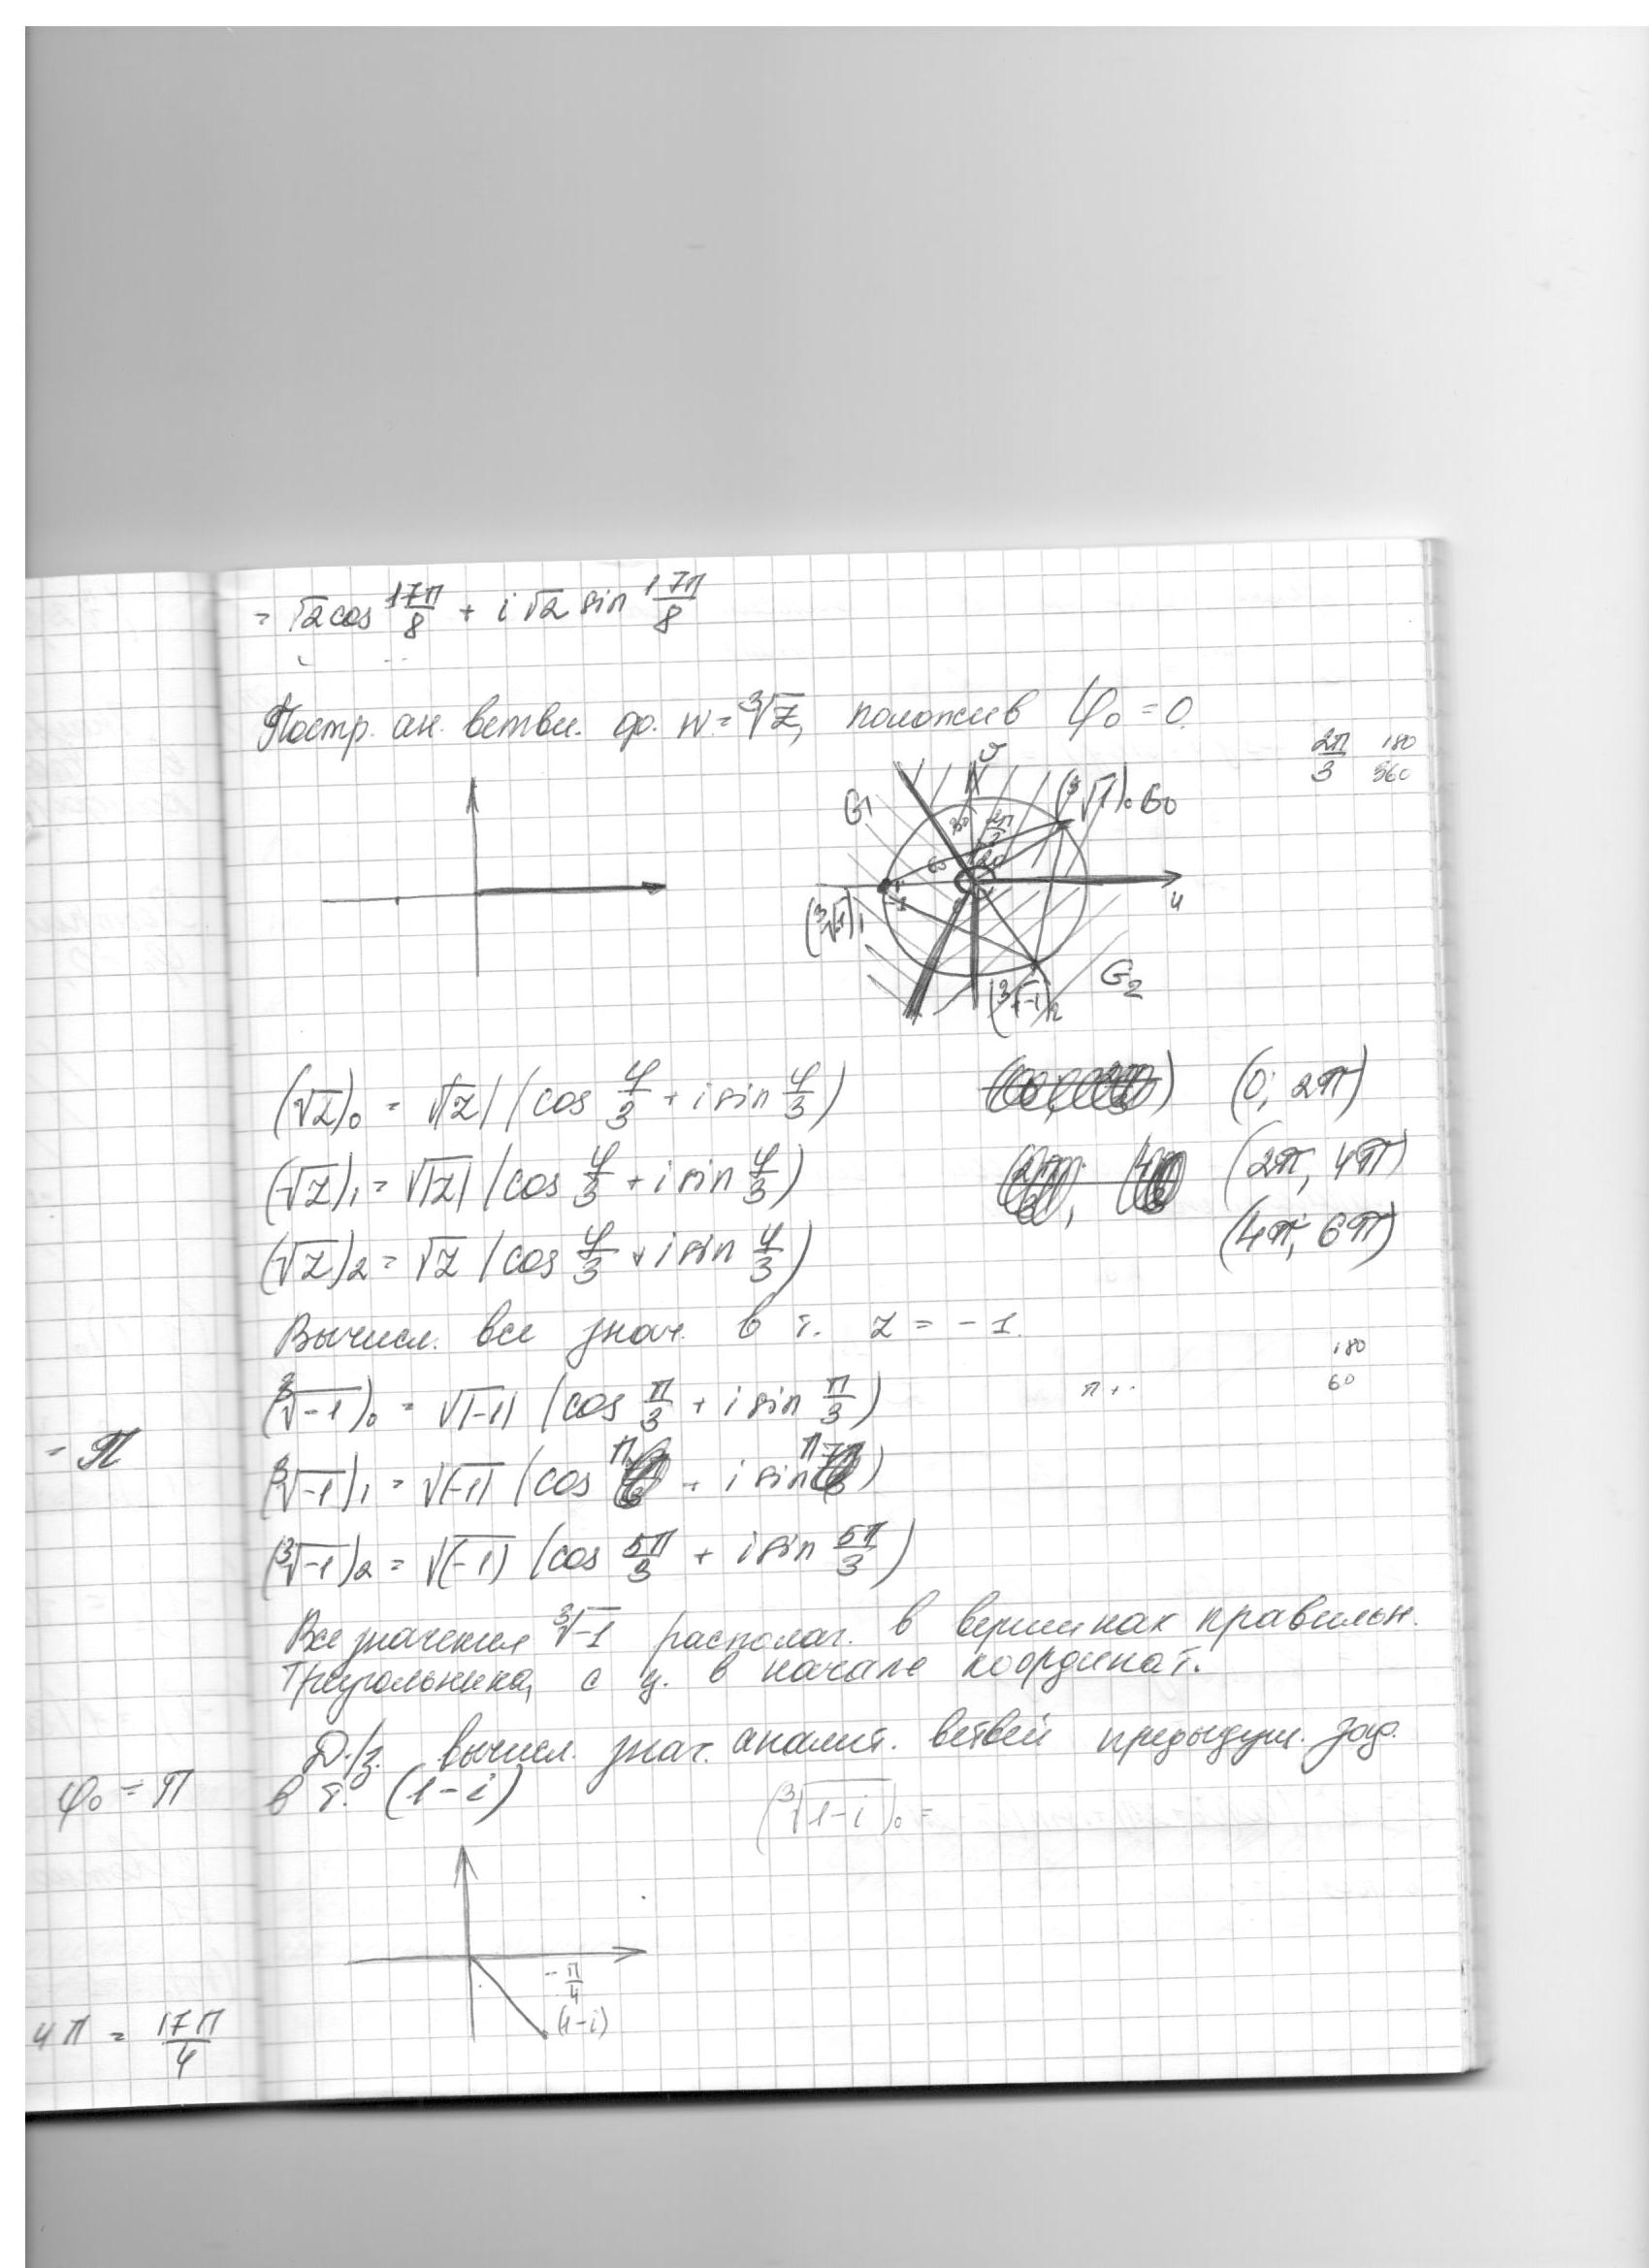 = √2 cos 17π/8 + i √2 sin 17π/8
Постр. ан. ветви. ф. w = ∛z, положив φ₀ = 0.
2π/3 180
360
v
G₁
(∛-1)₀ G₀
30
60
-1
u
(∛-1)₁
G₂
(∛-1)₂
(√z)₀ = √z| (cos φ/3 + i sin φ/3) (0; 2π)
(√z)₁ = √|z| (cos φ/3 + i sin φ/3) (2π; 4π)
(√z)₂ = √z (cos φ/3 + i sin φ/3) (4π; 6π)
Вычисл. все знач. в т. z = -1.
180
60
(∛-1)₀ = √|-1| (cos π/3 + i sin π/3) π + ..
= π
(∛-1)₁ = √|-1| (cos π + i sin π)
(∛-1)₂ = √(-1) (cos 5π/3 + i sin 5π/3)
Все значения ∛-1 располаг. в вершинах правильн.
треугольника, с ц. в начале координат.
Д/з. вычисл. знач. аналит. ветвей предыдущ. зад.
φ₀ = π
в т. (1-i) (∛1-i)₀ =
-π/4
(1-i)
4π = 17π/4